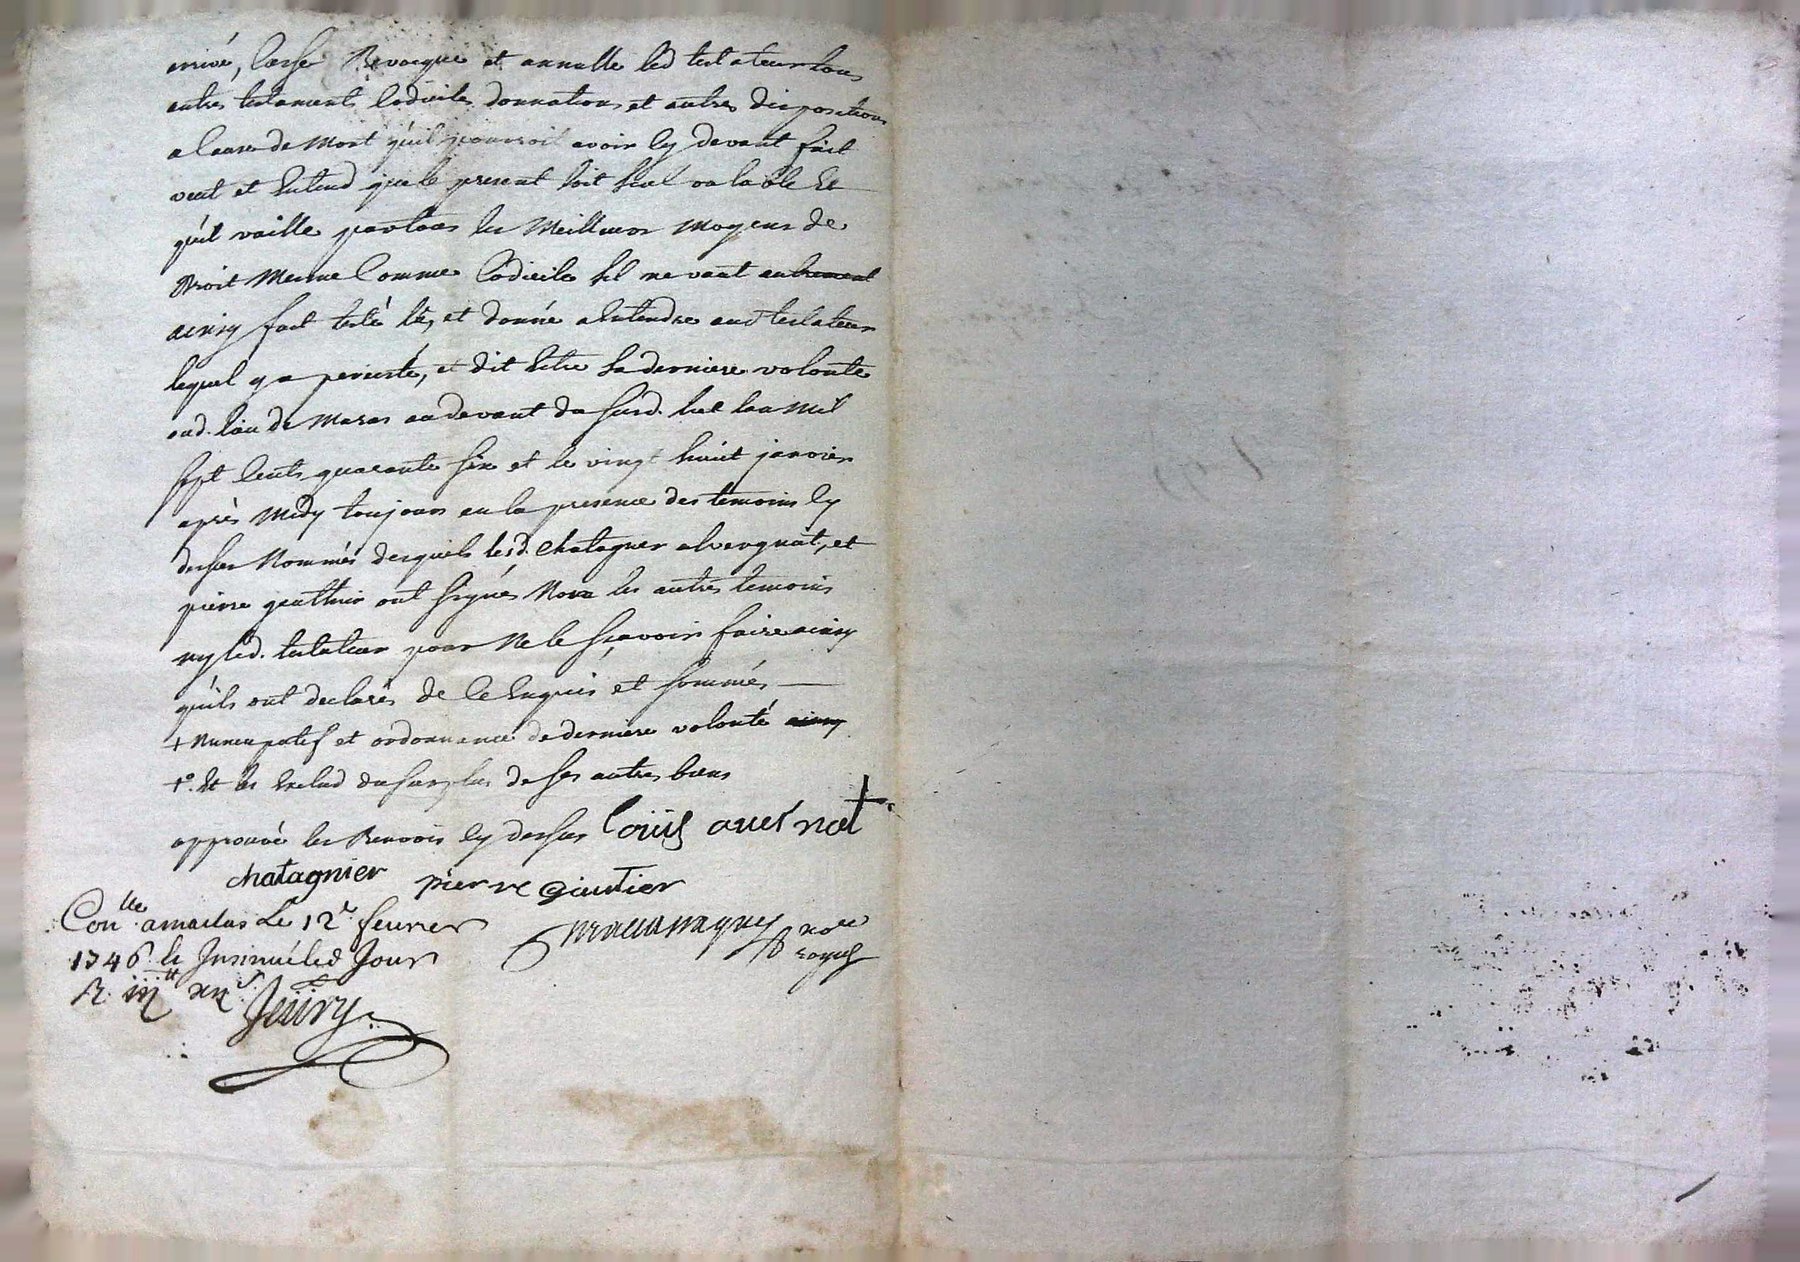 arrivé, Casse Revocque et annulle led testateur tous
autres testaments Codiciles donnations et autres dispositions
a Cause de Mort qu'il pourroit avoir Cy devant fait
veut et Entend que le present soit seul valable Et
qu'il vaille partous les Meilleurs Moyens de
Droit Mesme Comme Codicile sil ne vaut autrement
ainsy fait testé lû, et donné a Entendre aud testateur
lequel y a persisté, et dit Estre sa derniere volonté
aud. lieu de Maras au devant du susd. lan Mil
sept Cents quarante six et le vingt huit janvier
après Midy toujours en la presence des temoins Cy
dessus Nommés desquels lesd. Chatagner alvergnat, et
pierre gauthier ont signés Non les autres temoins
ny led. testateur pour Ne le sçavoir faire ainsy
qu'ils ont declarés de Ce Enquis et sommés
+ Nuncupatif et ordonnance de derniere volonté ainsy
+° Et les Exclud du surplus de ses autres biens
approuvé les Renvois Cy dessus Loüis
chatagnier pierre
Con.lle a Le 12e feurier
1746 et Insinué led Jour
R iii tt
Jeüry
no.re
royal